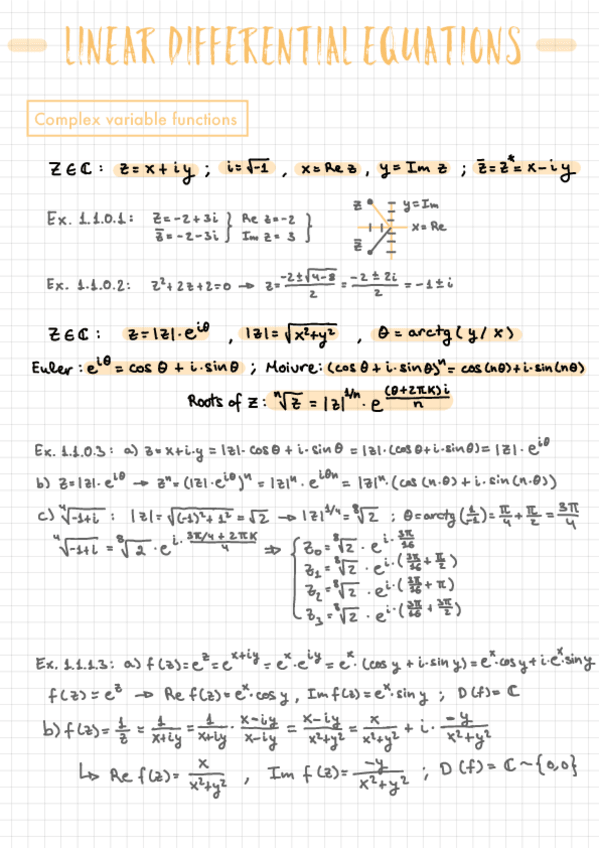 LINEAR DIFFERENTIAL EQUATIONS
Complex variable functions
Z∈ℂ: z=x+iy ; i=√-1 , x=Re z, y=Im z ; z̄=z*=x-iy
Ex. 1.1.0.1: z=-2+3i } Re z=-2 }
z̄=-2-3i } Im z=3 }
z y=Im
x=Re
z̄
Ex. 1.1.0.2: z²+2z+2=0 → z=(-2±√4-8)/2 = (-2±2i)/2 = -1±i
Z∈ℂ: z=|z|·e^iθ , |z|=√x²+y² , θ=arctg(y/x)
Euler: e^iθ = cos θ + i·sin θ ; Moivre: (cos θ + i·sin θ)^n = cos(nθ)+i·sin(nθ)
Roots of Z: ⁿ√z = |z|^1/n · e^(θ+2πK)i/n
Ex. 1.1.0.3: a) z=x+i·y = |z|·cos θ + i·sin θ = |z|·(cos θ+i·sin θ)= |z|·e^iθ
b) z=|z|·e^iθ → z^n=(|z|·e^iθ)^n = |z|^n · e^iθn = |z|^n·(cos(n·θ) + i·sin(n·θ))
c) ⁴√-1+i : |z|=√(-1)²+1² = √2 → |z|^1/4 = ⁸√2 ; θ=arctg(1/-1)= π/4 + π/2 = 3π/4
⁴√-1+i = ⁸√2 · e^i·(3π/4+2πK)/4 ⇒ { z₀=⁸√2 · e^i·3π/16
z₁=⁸√2 · e^i·(3π/16 + π/2)
z₂=⁸√2 · e^i·(3π/16 + π)
z₃=⁸√2 · e^i·(3π/16 + 3π/2)
Ex. 1.1.1.3: a) f(z)=e^z=e^x+iy = e^x·e^iy = e^x·(cos y + i·sin y)=e^x·cos y+i·e^x·sin y
f(z)=e^z → Re f(z)=e^x·cos y, Im f(z)=e^x·sin y ; D(f)=ℂ
b) f(z)=1/z = 1/(x+iy) = 1/(x+iy) · (x-iy)/(x-iy) = (x-iy)/(x²+y²) = x/(x²+y²) + i·-y/(x²+y²)
↳ Re f(z)= x/(x²+y²) , Im f(z)= -y/(x²+y²) ; D(f)=ℂ~{0,0}